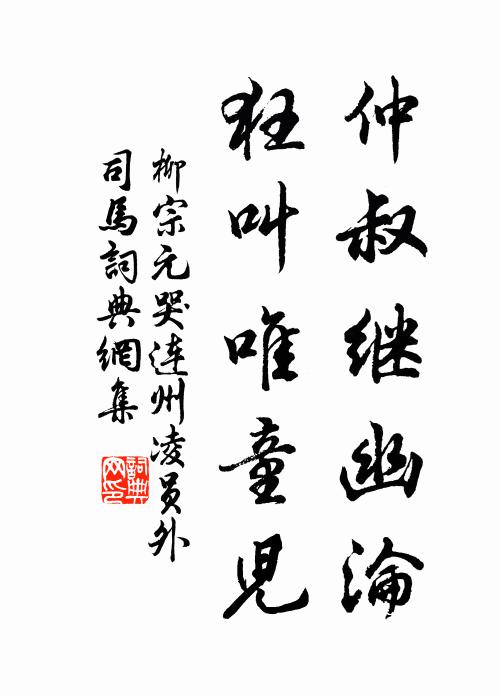 仲叔继幽淪
狂叫唯童児
柳宗元哭连州凌员外
司馬詞典網集
詞典
网印